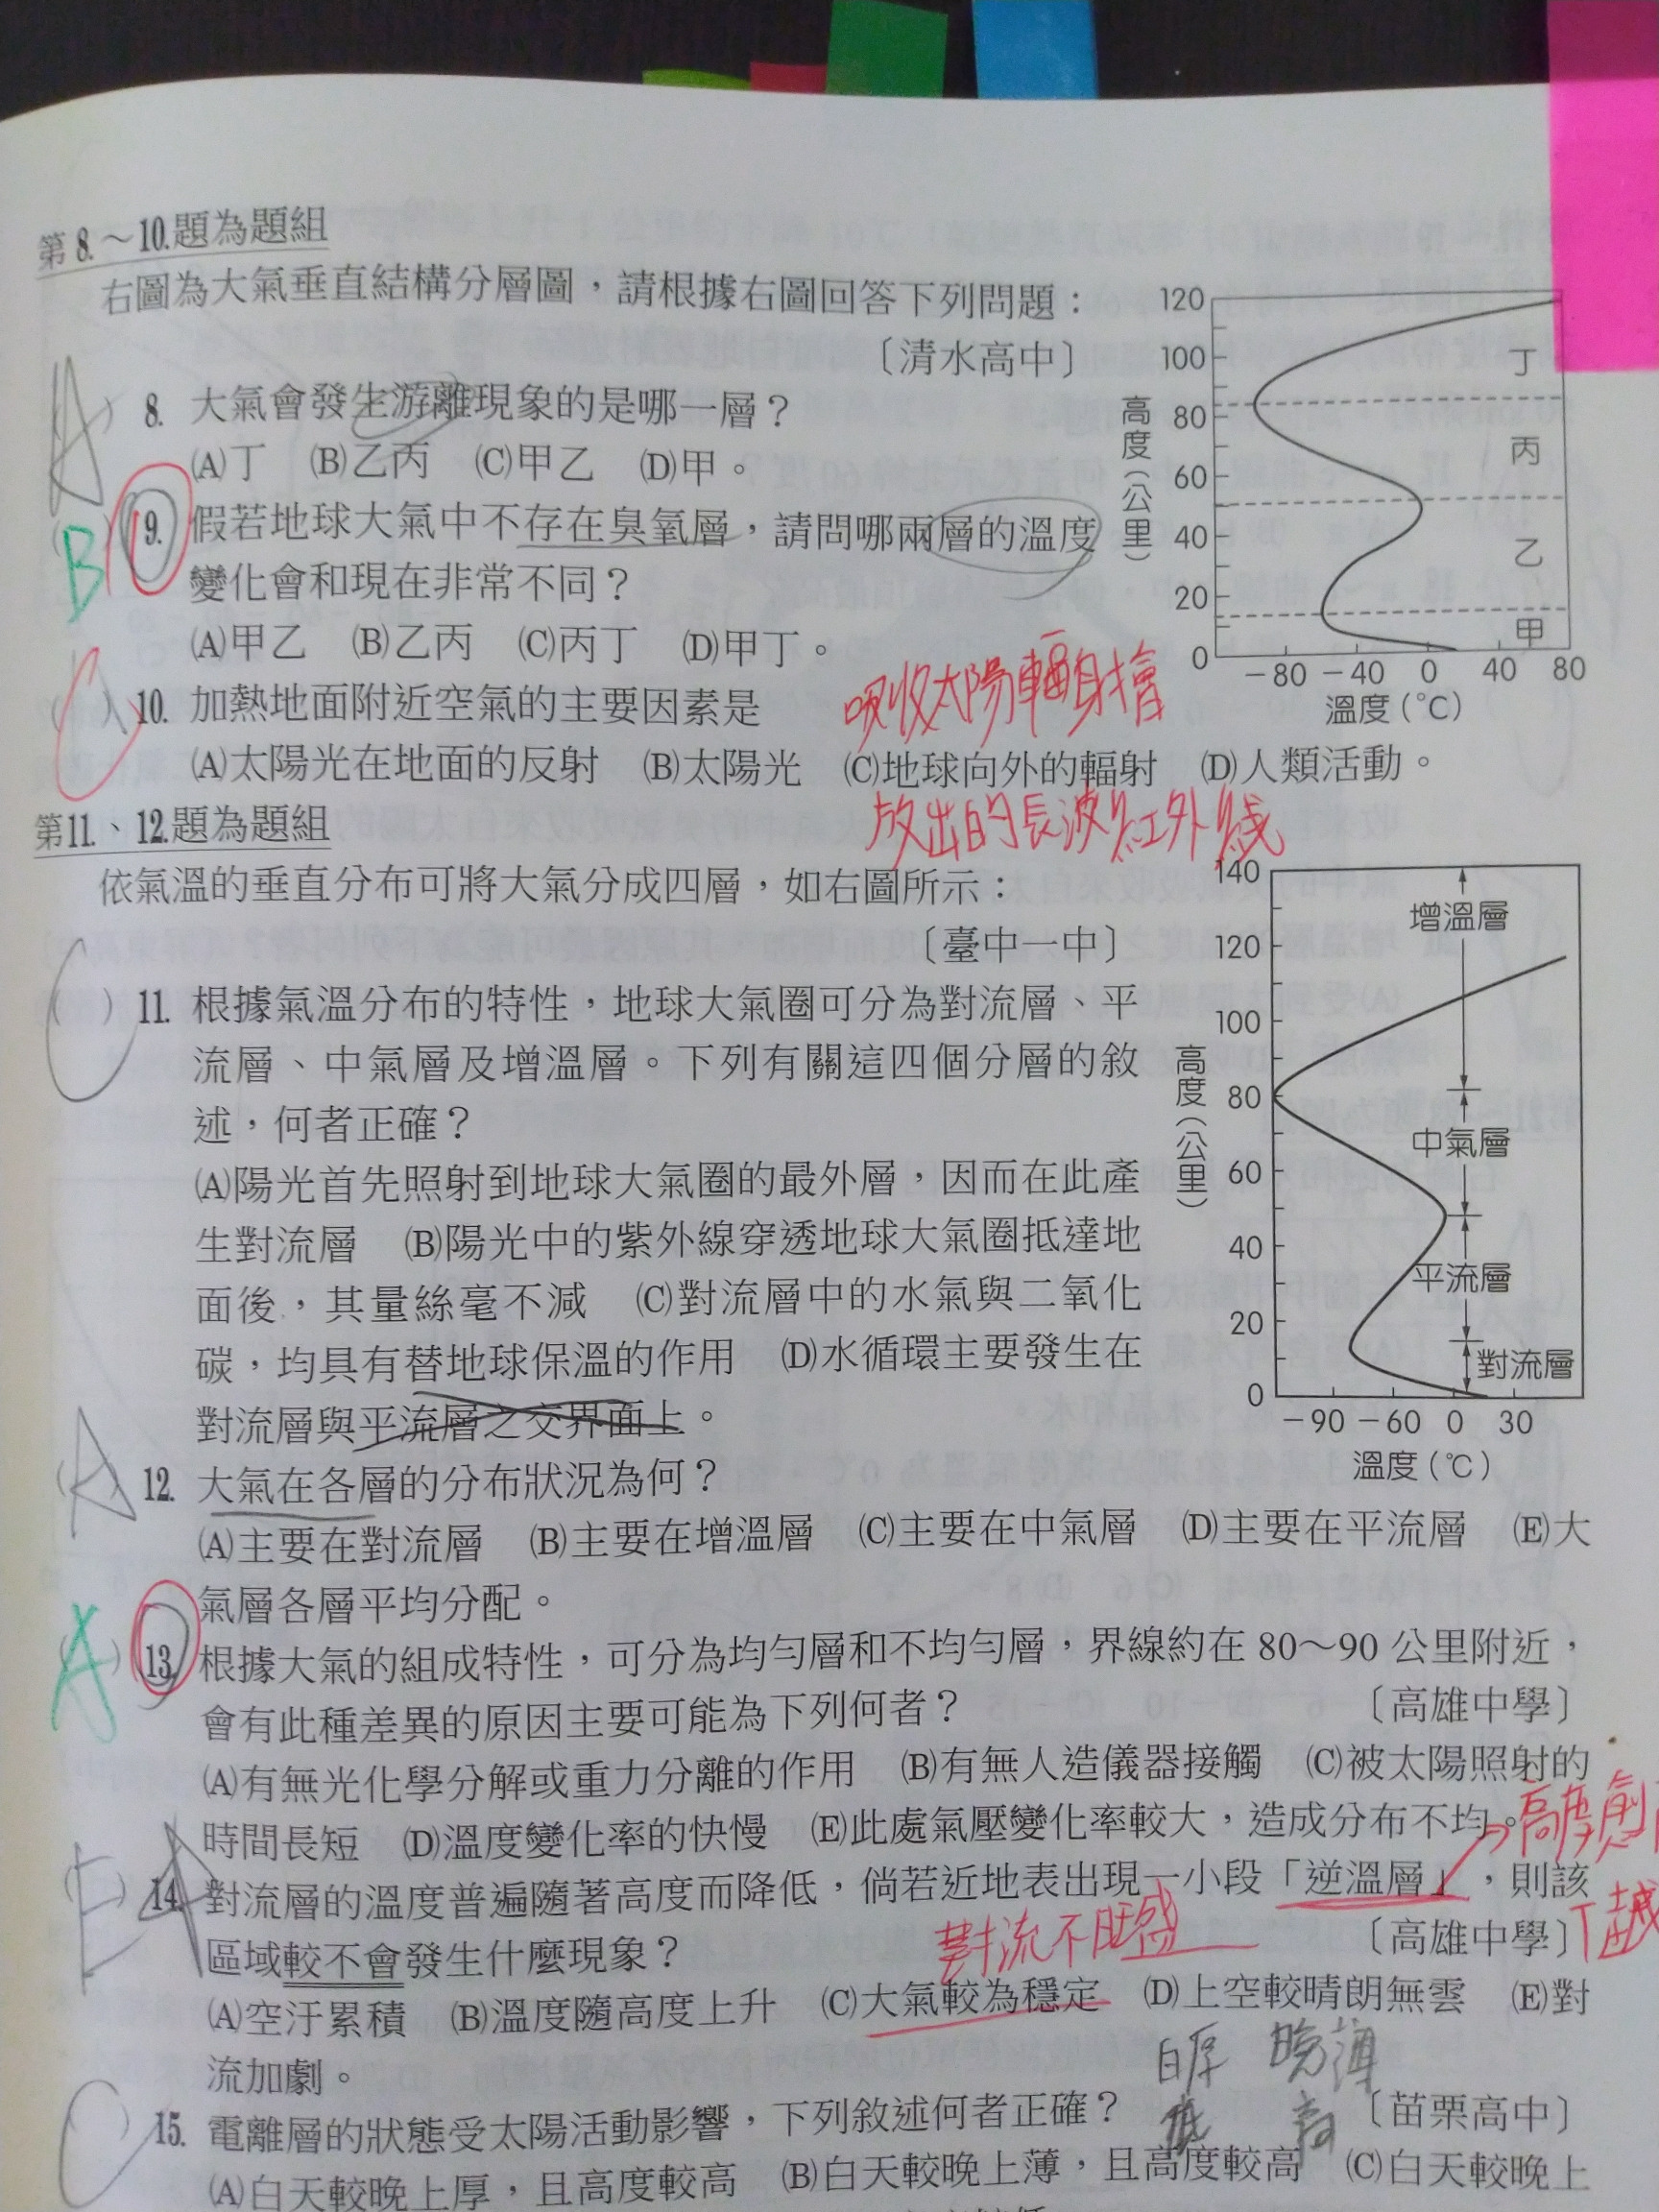 第8.～10.題為題組
右圖為大氣垂直結構分層圖，請根據右圖回答下列問題：
〔清水高中〕
A
( ) 8. 大氣會發生游離現象的是哪一層？
(A)丁 (B)乙丙 (C)甲乙 (D)甲。
B
( ) 9. 假若地球大氣中不存在臭氧層，請問哪兩層的溫度
變化會和現在非常不同？
(A)甲乙 (B)乙丙 (C)丙丁 (D)甲丁。
120
100
80
60
40
20
0
高度(公里)
丁
丙
乙
甲
－80 －40 0 40 80
溫度(℃)
吸收太陽輻射後
C
( ) 10. 加熱地面附近空氣的主要因素是
(A)太陽光在地面的反射 (B)太陽光 (C)地球向外的輻射 (D)人類活動。
放出的長波紅外線
第11.、12.題為題組
依氣溫的垂直分布可將大氣分成四層，如右圖所示：
〔臺中一中〕
C
( ) 11. 根據氣溫分布的特性，地球大氣圈可分為對流層、平
流層、中氣層及增溫層。下列有關這四個分層的敘
述，何者正確？
(A)陽光首先照射到地球大氣圈的最外層，因而在此產
生對流層 (B)陽光中的紫外線穿透地球大氣圈抵達地
面後，其量絲毫不減 (C)對流層中的水氣與二氧化
碳，均具有替地球保溫的作用 (D)水循環主要發生在
對流層與平流層之交界面上。
140
120
100
80
60
40
20
0
高度(公里)
增溫層
中氣層
平流層
對流層
－90 －60 0 30
溫度(℃)
A
( ) 12. 大氣在各層的分布狀況為何？
(A)主要在對流層 (B)主要在增溫層 (C)主要在中氣層 (D)主要在平流層 (E)大
氣層各層平均分配。
A
( ) 13. 根據大氣的組成特性，可分為均勻層和不均勻層，界線約在 80～90 公里附近，
會有此種差異的原因主要可能為下列何者？ 〔高雄中學〕
(A)有無光化學分解或重力分離的作用 (B)有無人造儀器接觸 (C)被太陽照射的
時間長短 (D)溫度變化率的快慢 (E)此處氣壓變化率較大，造成分布不均。
高度愈
E
( ) 14. 對流層的溫度普遍隨著高度而降低，倘若近地表出現一小段「逆溫層」，則該
區域較不會發生什麼現象？ 〔高雄中學〕
T越
對流不旺盛
(A)空汙累積 (B)溫度隨高度上升 (C)大氣較為穩定 (D)上空較晴朗無雲 (E)對
流加劇。
白厚 晚薄
低 高
C
15. 電離層的狀態受太陽活動影響，下列敘述何者正確？ 〔苗栗高中〕
(A)白天較晚上厚，且高度較高 (B)白天較晚上薄，且高度較高 (C)白天較晚上